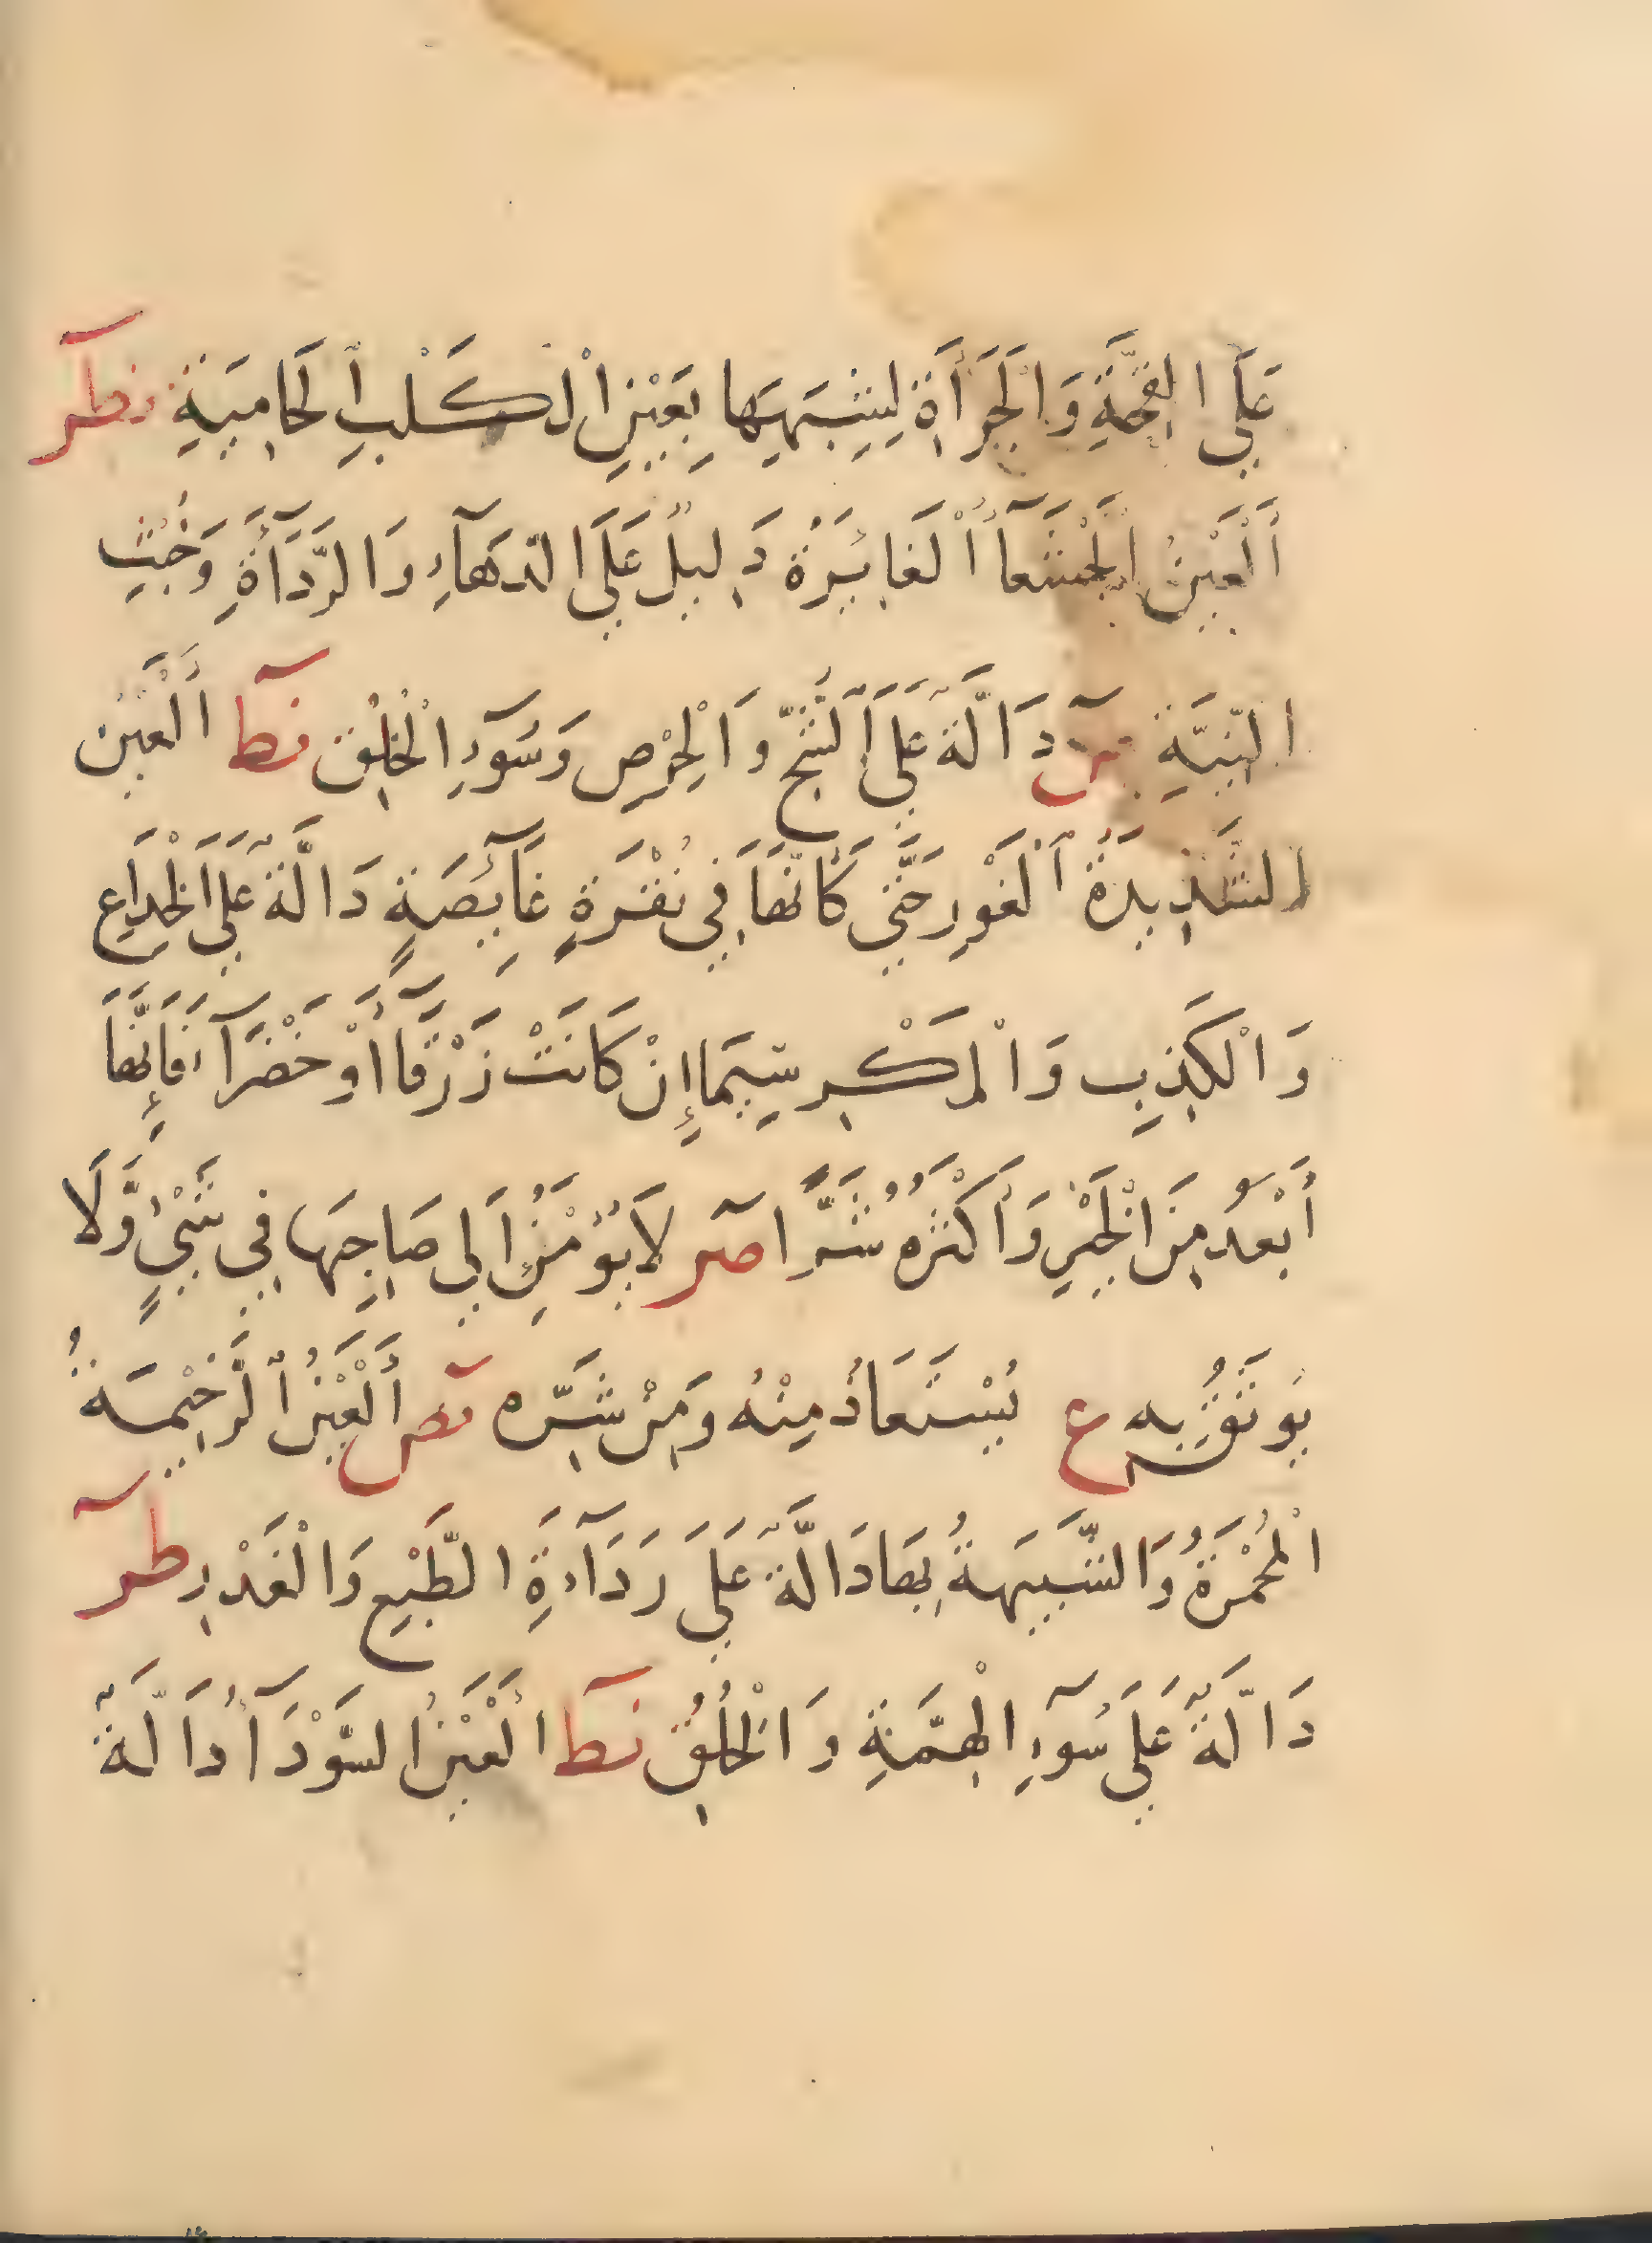 عَلَى القِحَّةِ وَالْجَرَأَةِ لِشِبَهِهَا بِعَيْنِ الْكَلْبِ الْحَامِيَةِ نطر
أَلْعَيْنُ الْجَشْعَآءُ الْغَايِرَةُ دَلِيلٌ عَلَى الدَّهَآءِ وَالرَّدَآءَةِ وَخُبْثِ
النِّيَّةِ دَالَّةٌ عَلَى الشُّحِّ وَالْحِرْصِ وَسُوٓءِ الْخُلُقِ نط أَلْعَيْنُ
الشَّدِيدَةُ الْغَوْرِ حَتَّى كَأَنَّهَا فِي نُقْرَةٍ غَآئِصَةٍ دَالَّةٌ عَلَى الْخِدَاعِ
وَالْكَذِبِ وَالْمَكْرِ سِيَمَا إِنْ كَانَتْ زَرْقَآ أَوْ خَضْرَآءَ فَإِنَّهَا
أَبْعَدُ مِنَ الْخَيْرِ وَأَكْثَرُهُ شَرًّا صر لَا يُؤْمَنُ إِلَى صَاحِبِهَا فِي شَيْءٍ وَّلَا
يُوثَقُ بِهِ ع يُسْتَعَاذُ مِنْهُ وَمِنْ شَرِّهِ نص أَلْعَيْنُ الرَّخِيْمَةُ
الْحُمْرَةُ وَالشَّبِيهَةُ بِهَا دَالَّةٌ عَلَى رَدَآءَةِ الطَّبْعِ وَالْغَدْرِ طر
دَالَّةٌ عَلَى سُوٓءِ الْهِمَّةِ وَالْخُلُقِ نط الْعَيْنُ السَّوْدَآءُ دَالَّةٌ